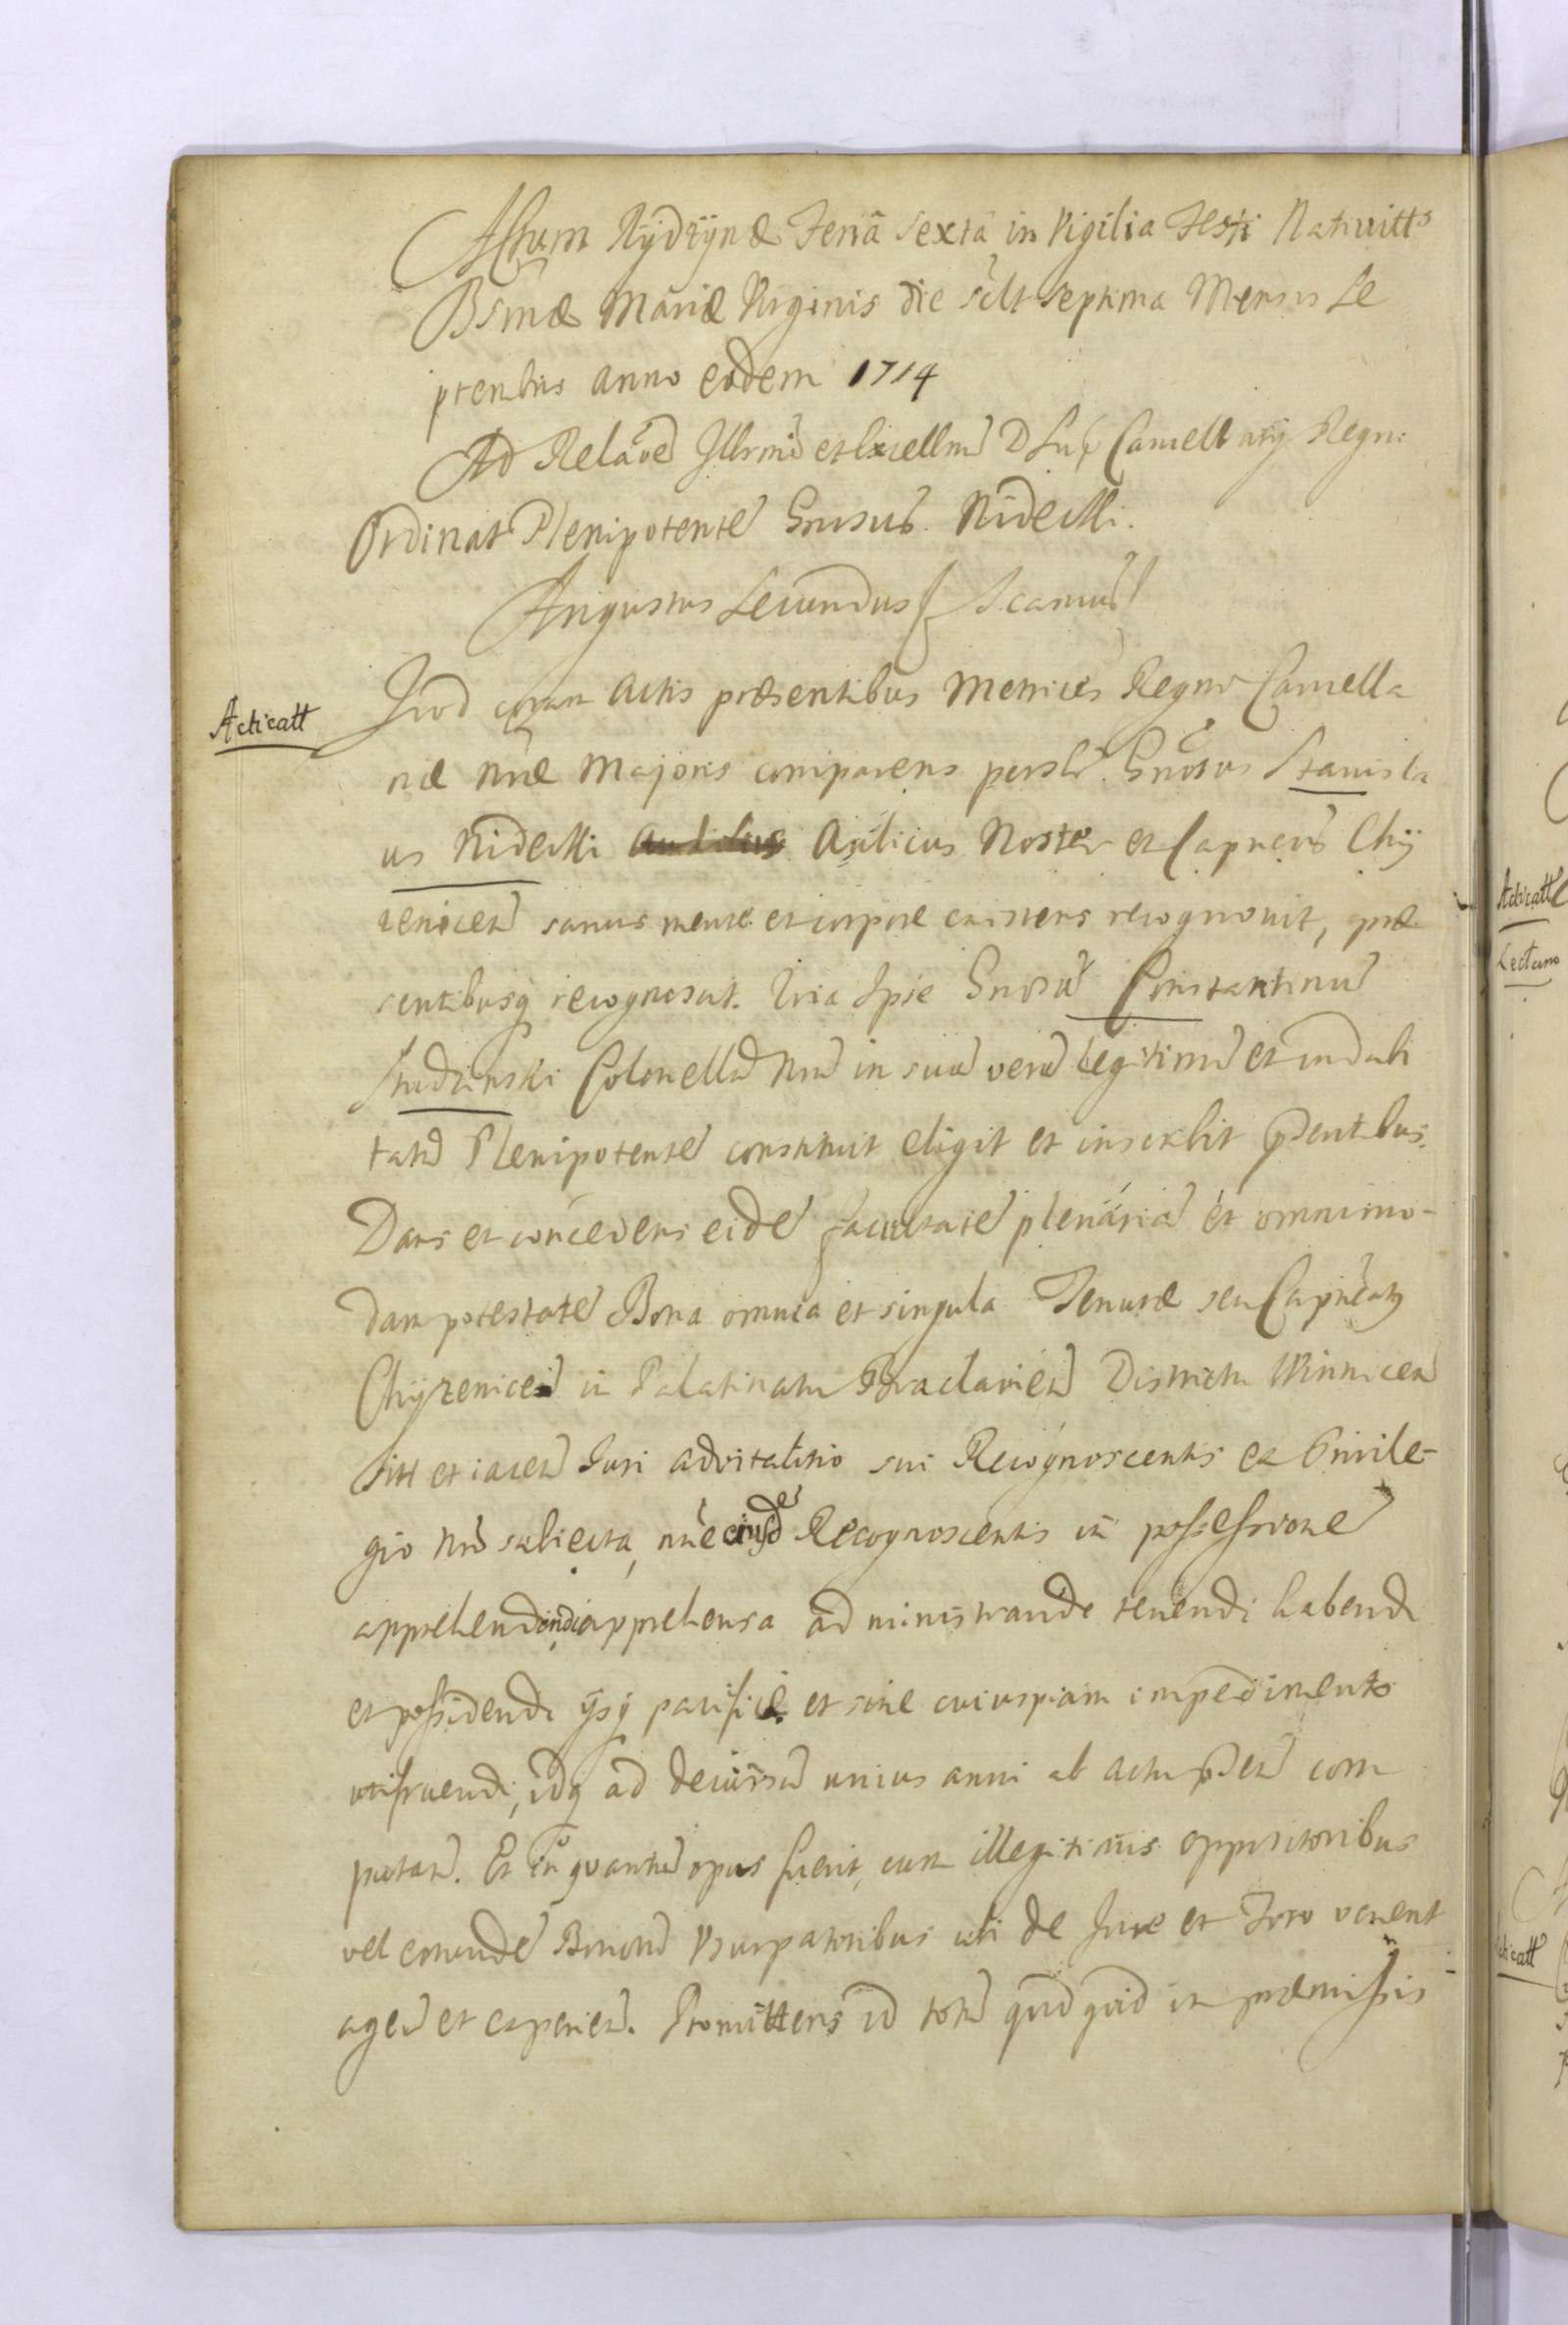 Actum Rydzynæ Feria sexta in Vigilia Festi Nativitts
Bsmæ Mariæ Virginis die scilt septima Mensis Se
ptembris anno eodem 1714
Ad Relaõe Illrmi et Excellmi D Sup Cancellarij Regni
Ordinat Plenipotente Gnosus Nidecki.
Augustus Secundus & Scamus
Acticatt
Quod coram Actis præsentibus Metrices Regni Cancella
riæ Nræ Majoris comparens persltr Gnosus Stanisla
us Nidecki Aulicus Noster et Capneus Chy
zenicen sanus mente et corpore existens recognovit, præ
sentibusq recognoscit. Quia Ipse Gnosu Constantinu
Studzinski Colonellu Nru in suu veru legitimu et indubi
tatu Plenipotente constituit eligit et inscribit pntibus.
Dans et concedens eide facultate plenaria et omnimo-
dam potestate Bona omnia et singula Tenutæ seu Capneatg
Chyzenicen in Palatinatu Braclavien Districtu Winnicen
sitt et iacen Juri advitalitio sui Recognoscentis ex Privile-
gio Nro subiecta, nne eiusde Recognoscentis in possessione
apprehendendi apprehensa administrandi tenendi habendi
et possidendi ijsq pacificè et sine cuiuspiam impedimento
utifruendi, idq ad decursu unius anni ab actu pnti com
putan. Et in quantu opus fuerit, cum illegitimis oppositoribus
vel eorunde Bonoru Usurpatoribus ubi de Jure et Foro venerit
agen et experien. Promittens id totu quidquid in præmissis